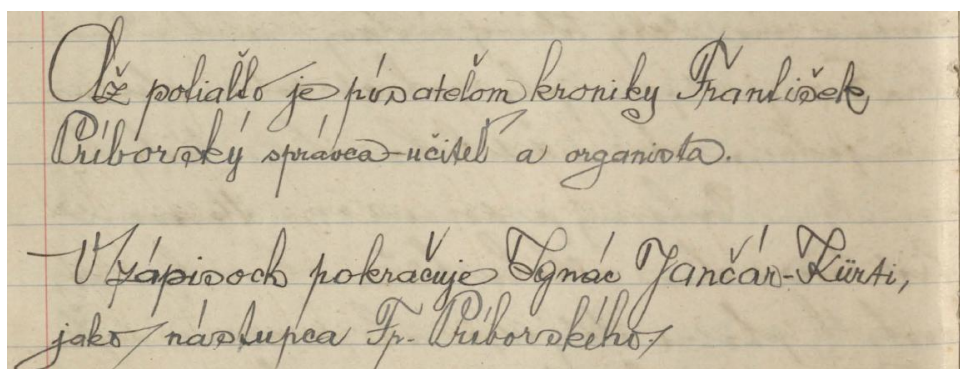 Až potiaľto je pisateľom kroniky František
Príborský správca-učiteľ a organista.
V zápisoch pokračuje Ignác Jančár-Kürti,
jako nástupca Fr. Príborského.